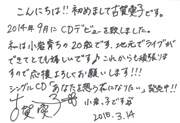 こんにちは!! 初めまして古賀雫子です。
2014年9月にCDデビューを致しました。
私は小倉育ちの20歳です、地元でライブが
できてとても嬉しいです♪これからも頑張りま
すので応援よろしくお願いします!!!
シングルCD『あなたを想う木になりたい』発売中!!
小倉、
2015.3.14